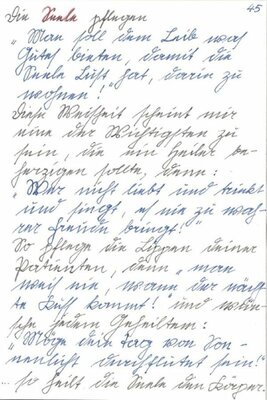 45
Die Seele pflegen
„Man soll dem Leib was
Gutes bieten, damit die
Seele Lust hat, darin zu
wohnen!“
Diese Weisheit scheint mir
eine der Wichtigsten zu
sein, die ein Heiler be-
herzigen sollte, denn:
„Wer nicht liebt und trinkt
und singt, es nie zu wah-
rer Freude bringt!“
So pflege die Lippen deiner
Patienten, denn „man
weiß nie, wann der näch-
te Kuss kommt!“ und wün-
sche jedem Geheiltem:
„Möge dein Tag von Son-
nenlicht durchflutet sein!“
... so heilt die Seele den Körper.